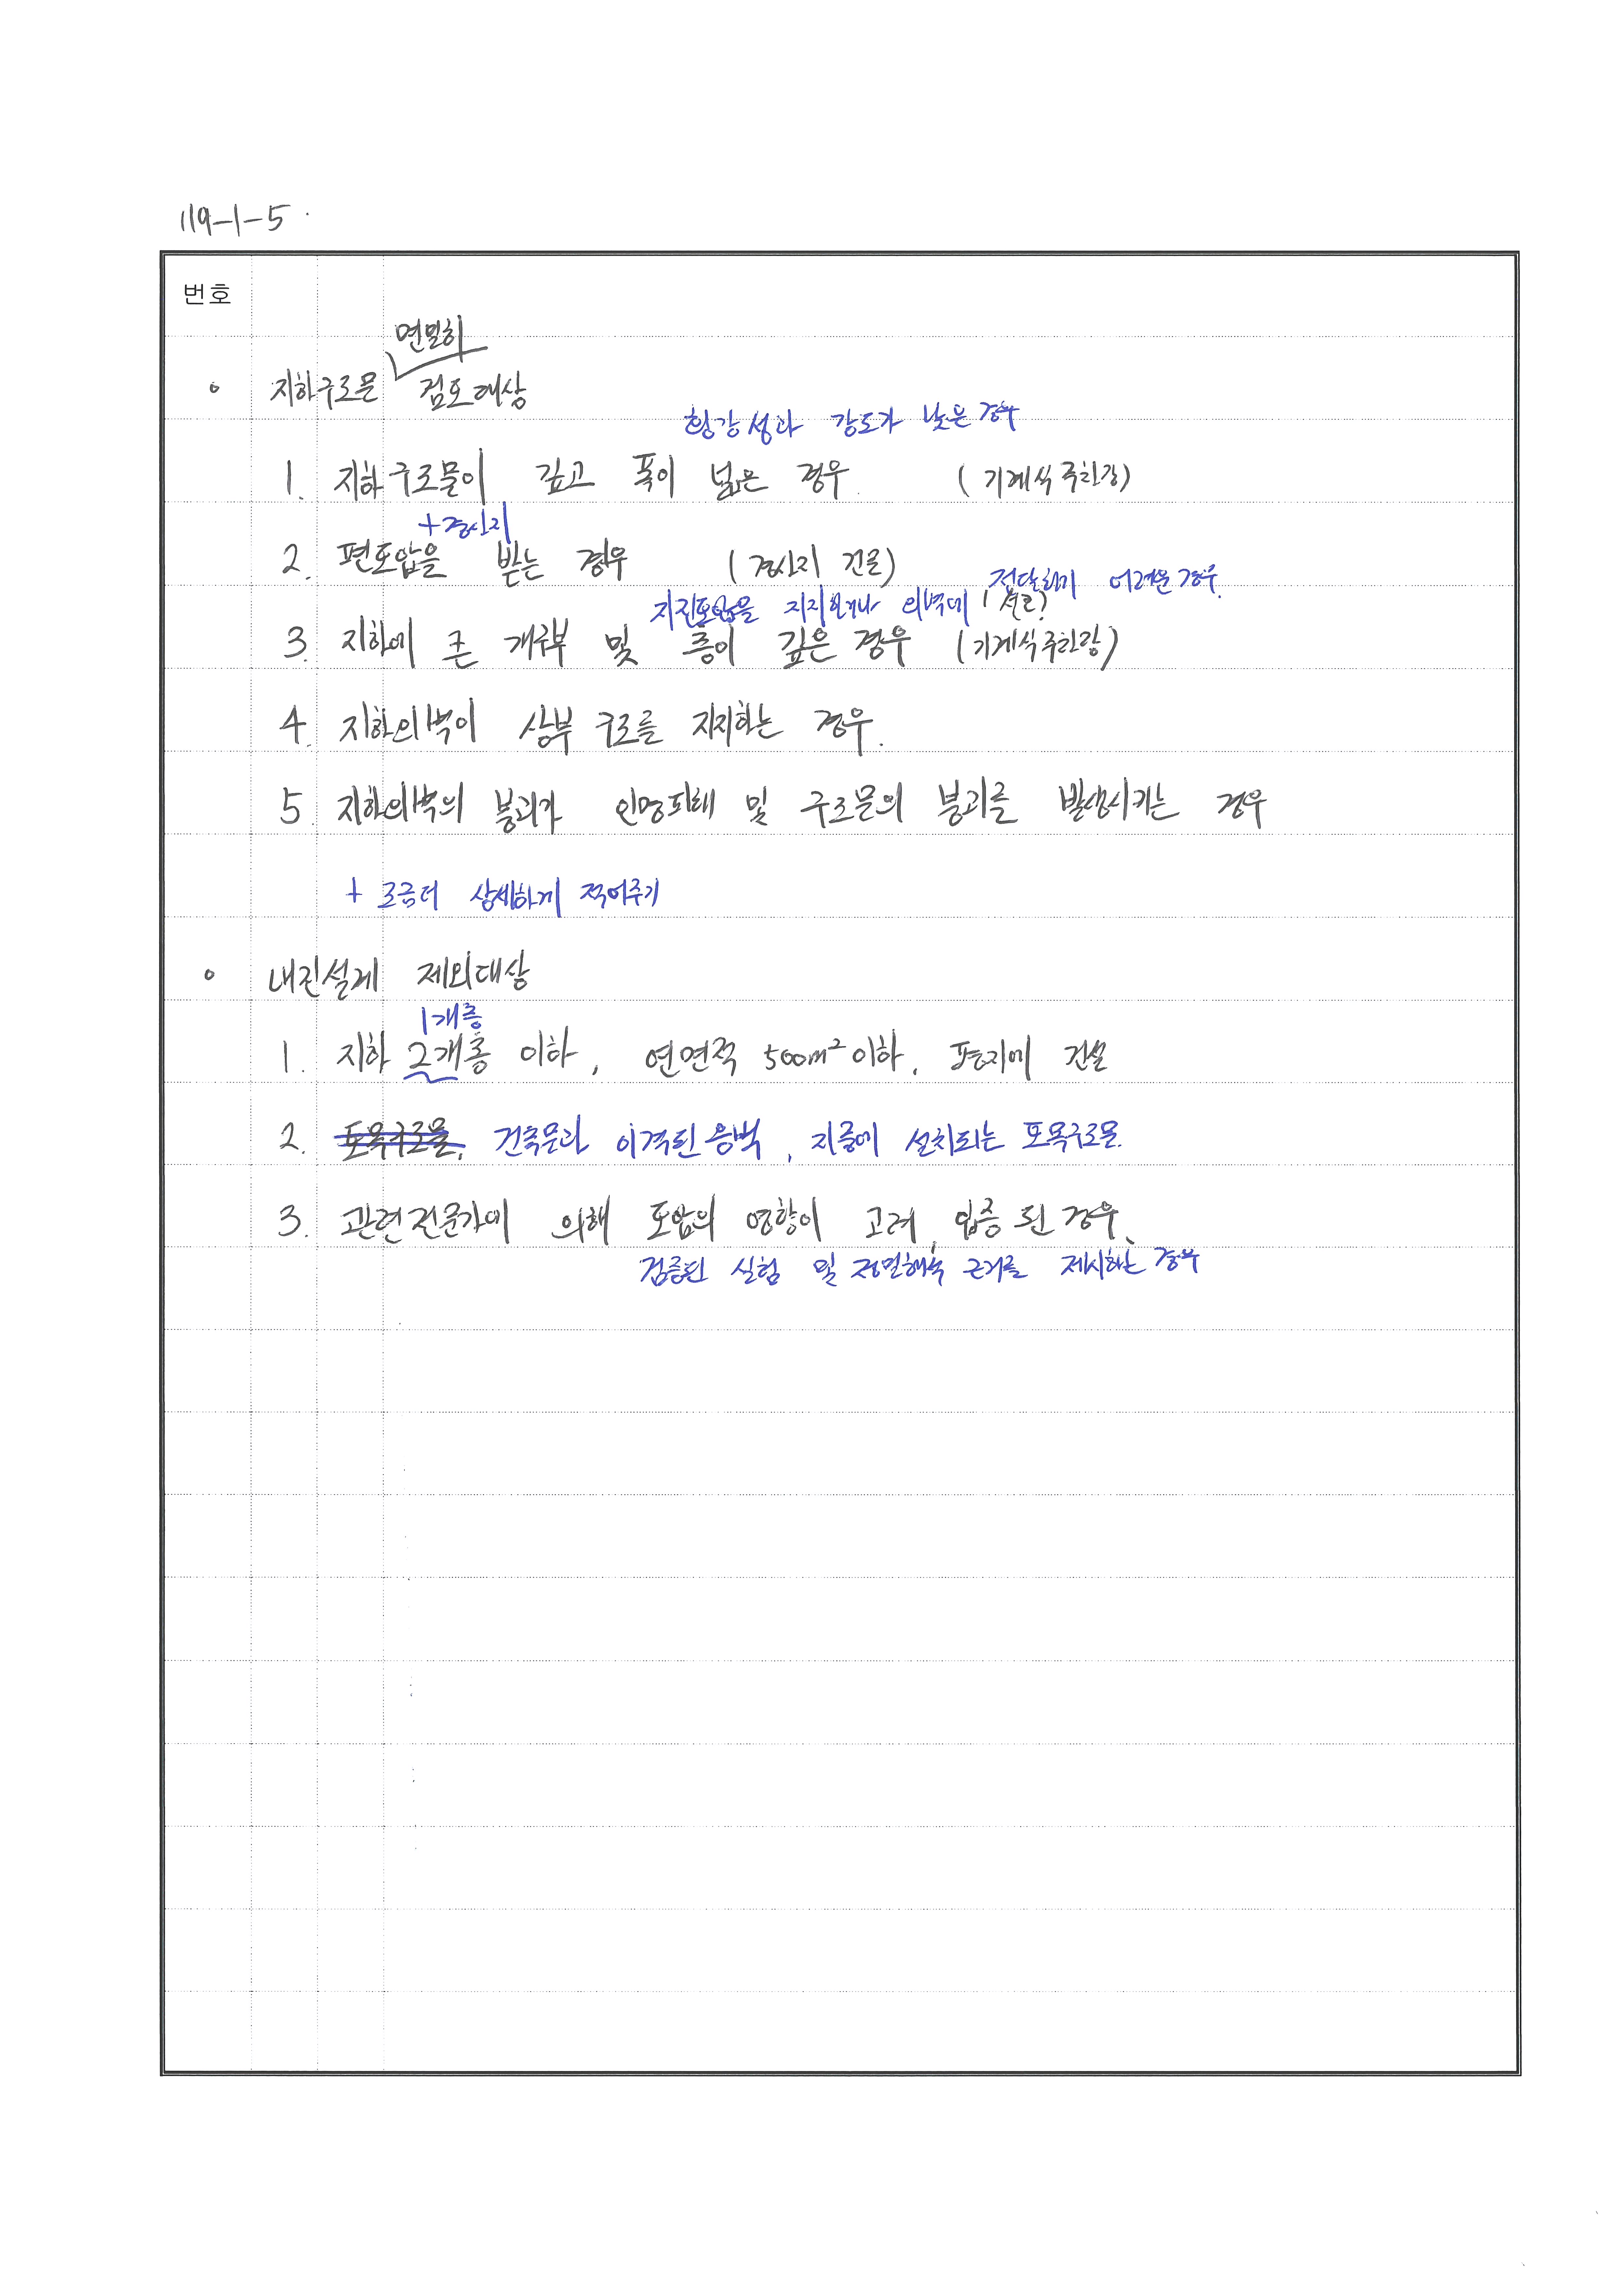 119-1-5.
번호
면밀히
지하구조물 검토대상
횡강성과 강도가 낮은 경우
1. 지하구조물이 깊고 폭이 넓은 경우. (기계식 주차장)
+경사지
2. 편토압을 받는 경우 (경사지 건물)
전달하기 어려운 경우.
지진토압을 지지하거나 외벽에
3. 지하에 큰 개구부 및 층이 깊은 경우 (기계식 주차장)
4. 지하외벽이 상부 구조를 지지하는 경우.
5. 지하외벽의 붕괴가 인명피해 및 구조물의 붕괴를 발생시키는 경우
+ 조금더 상세하게 적어주기
내진설계 제외대상
1개층
1. 지하 2개층 이하, 연면적 500m² 이하, 평지에 건설
2. 토목구조물, 건축물과 이격된 옹벽, 지중에 설치되는 토목구조물.
3. 관련 전문가에 의해 토압의 영향이 고려, 입증 된 경우.
검증된 실험 및 정밀해석 근거를 제시하는 경우